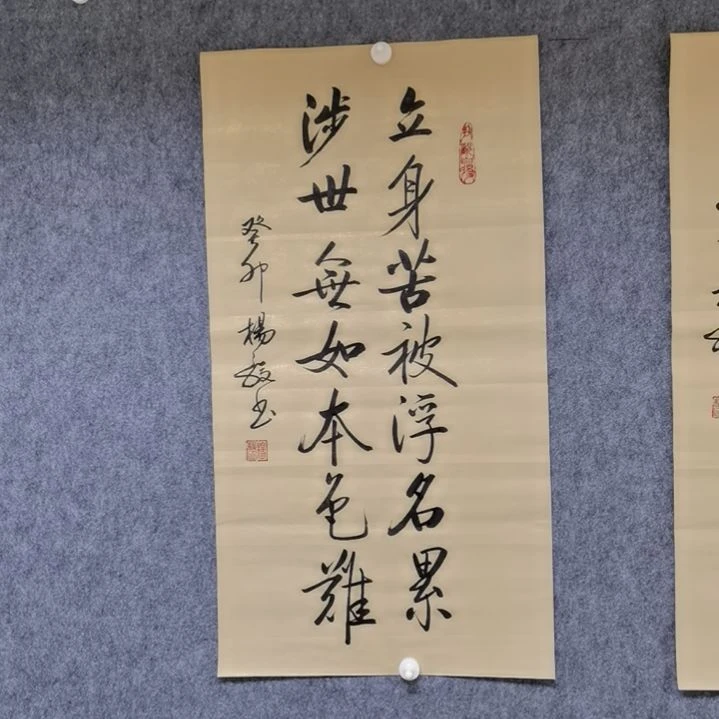 立身苦被浮名累
涉世無如本色難
癸卯楊毅书